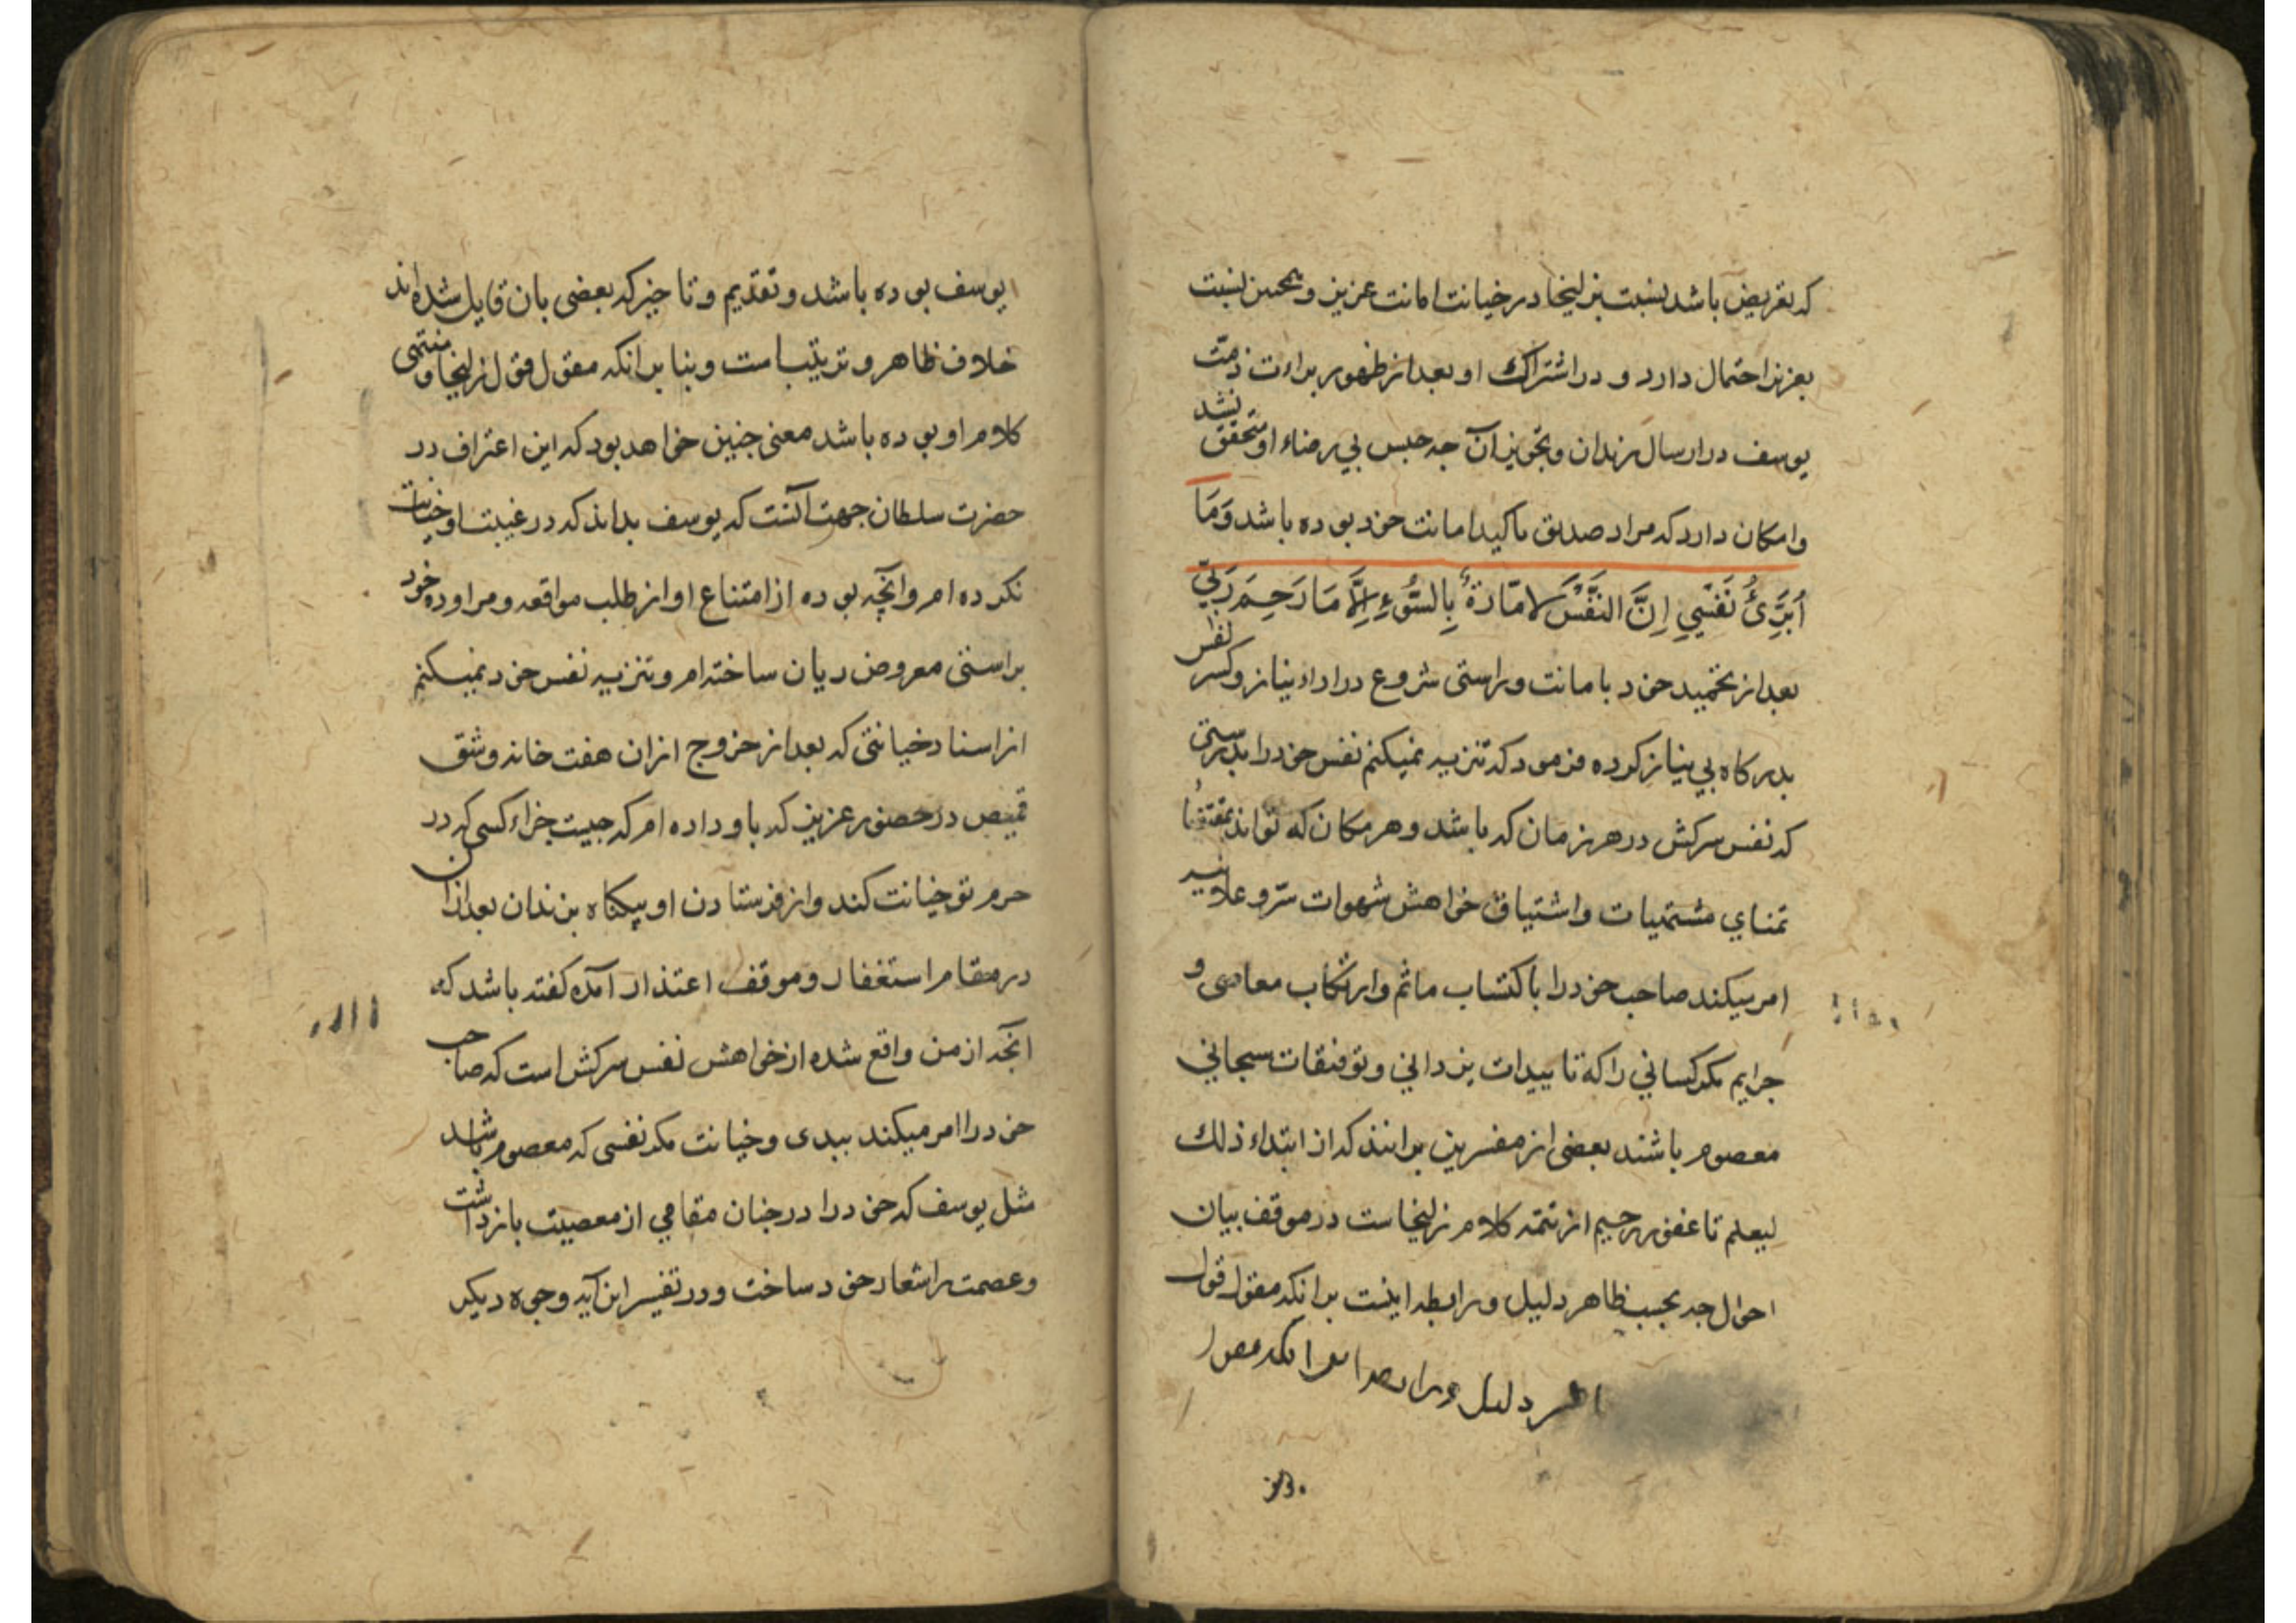 که تعریض باشد نسبت بزلیخا در خیانت امانت عزیز و همچنین نسبت
بعزیز احتمال دارد و در اشتراک او بعد از ظهور براءت ذمت
یوسف در ارسال زندان و تجویز آن چه حبس بی رضاء او متحقق نشد
وامکان دارد که مراد صدیق تاکید امانت خود بوده باشد وَمَا
اُبَرِّئُ نَفْسِي اِنَّ النَفْسَ لاَمّارَةٌ بِالسُّوءِ اِلاَّ مَا رَحِمَ رَبِّي
بعد از تحمید خود بامانت و راستی شروع در اداء نیاز و کسر نفس
بدرکاه بی نیاز کرده فرمود که تنزیه نمیکنم نفس خود را بدرستی
که نفس سرکش در هر زمان که باشد و هر مکان که تواند بمقتضا
تمنای مشتهیات و اشتیاق خواهش شهوات سرّ و علانیه
امر میکند صاحب خود را باکتساب ماثم و ارتکاب معاصی و
جرایم مکر کسانی را که تاییدات یزدانی و توفیقات سبحانی
معصوم باشند بعضی از مفسرین برانند که از ابتداء ذلک
لیعلم تا غفور رحیم از تتمه کلام زلیخاست در موقف بیان
احوال چه بحسب ظاهر دلیل و رابطه اینست برانکه مقول قول
دلیل و
یوسف بوده باشد و تقدیم و تاخیر که بعضی بان قایل شده اند
خلاف ظاهر و ترتیب است و بنا برانکه مقول قول زلیخا و منتهی
کلام او بوده باشد معنی چنین خواهد بود که این اعتراف در
حضرت سلطان جهت آنست که یوسف بداند که در غیبت او خیانت
نکرده ام و آنچه بوده از امتناع او از طلب مواقعه و مراوده خود
براستی معروض دیان ساخته ام و تنزیه نفس خود نمیکنم
از اسناد خیانتی که بعد از خروج ازان هفت خانه و شق
قمیص در حضور عزیز که باو داده ام که چیست جزاء کسی که در
حرم تو خیانت کند و از فرستادن او بیکناه بزندان بعد ازان
در مقام استغفار و موقف اعتذار آمده کفته باشد که
آنچه از من واقع شده از خواهش نفس سرکش است که صاحب
خود را امر میکند ببدی و خیانت مکر نفسی که معصوم باشد
مثل یوسف که خود را در چنان مقامی از معصیت باز داشت
و عصمت را شعار خود ساخت و در تفسیر این آیه وجوه دیکر